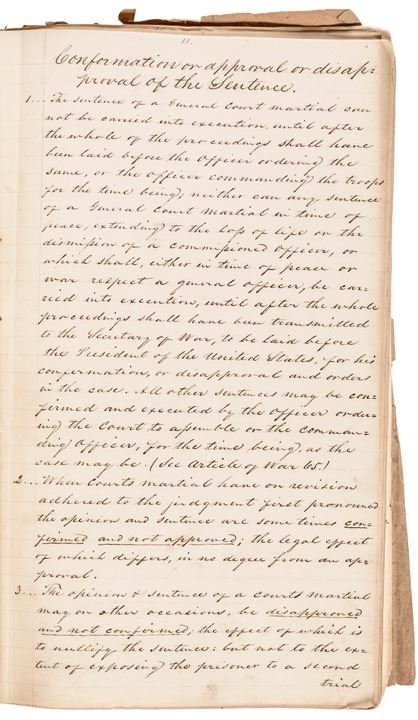 11.
Conformation or approval or disap-
proval of the Sentence.
1... The sentence of a General Court martial can
not be carried into execution, until after
the whole of the proceedings shall have
been laid before the Officer ordering the
same, or the Officer commanding the troops
for the time being; neither can any sentence
of a General Court Martial in time of
peace, extending to the loss of life or the
dismission of a commissioned Officer, or
which shall, either in time of peace or
war respect a general officer, be car-
ried into execution, until after the whole
proceedings shall have been transmitted
to the Secretary of War, to be laid before
the President of the United States, for his
confermation, or disapproval and orders
in the case. All other sentences may be con-
firmed and executed by the Officer order-
ing the Court to assemble or the comman-
ding Officer, for the time being, as the
case may be. (See Article of War 65.)
2... When Courts martial have on revision
adhered to the judgment first pronounced
the opinion and sentence are some times con-
firmed and not approved; the legal effect
of which differs, in no degree from an ap-
proval.
3... The opinion & sentence of a courts martial
may on other occasions, be disapproved
and not confirmed; the effect of which is
to nullify the sentence: but not to the ex-
tent of exposing the prisoner to a second
trial